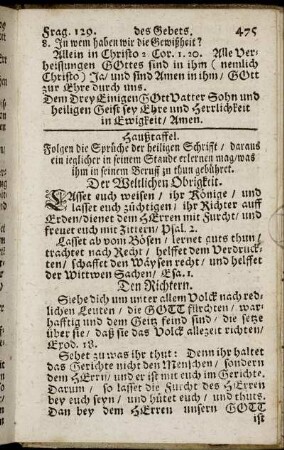 Frag. 129. des Gebets. 475
8. In wem haben wir die Gewißheit?
Allein in Christo 2 Cor. 1. 20. Alle Ver-
heissungen GOttes sind in ihm ( nemlich
Christo) Ja/ und sind Amen in ihm/ GOtt
zur Ehre durch uns.
Dem Drey Einigen GOtt Vatter Sohn und
heiligen Geist sey Ehre und Herrlichkeit
in Ewigkeit/ Amen.
Haußtaffel.
Folgen die Sprüche der heiligen Schrift / daraus
ein ieglicher in seinem Stande erlernen mag/was
ihm in seinem Beruff zu thun gebühret.
Der Weltlichen Obrigkeit.
LAsset euch weisen / ihr Könige / und
lasset euch züchtigen / ihr Richter auff
Erden/dienet dem HErren mit Furcht/ und
freuet euch mit Zittern/ Psal. 2.
Lasset ab vom Bösen / lernet guts thun/
trachtet nach Recht / helffet dem Verdruck-
ten/ schaffet den Wäysen recht/ und helffet
der Wittwen Sachen/ Esa. 1.
Den Richtern.
Siehe dich um unter allem Volck nach red-
lichen Leuten / die GOTT fürchten / war-
hafftig und dem Geitz feind sind/ die setze
über sie/ daß sie das Volck allezeit richten/
Exod. 18.
Sehet zu was ihr thut: Denn ihr haltet
das Gerichte nicht den Menschen / sondern
dem HErrn/ und er ist mit euch im Gerichte.
Darum / so lasset die Furcht des HErren
bey euch seyn/ und hütet euch / und thuts.
Dan bey dem HErren unsern GOTT
ist